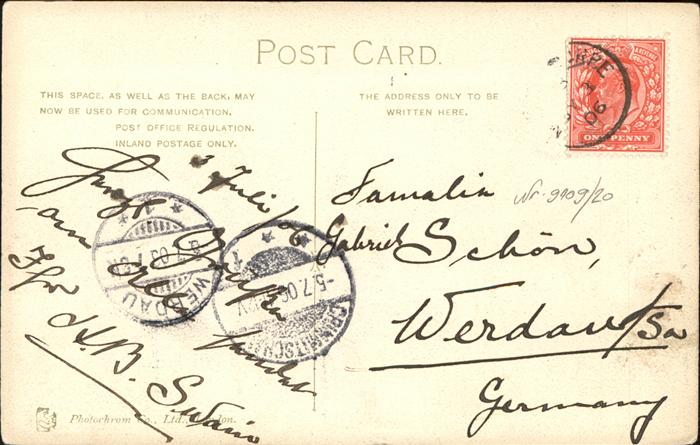 POST CARD.
THIS SPACE, AS WELL AS THE BACK, MAY
NOW BE USED FOR COMMUNICATION.
POST OFFICE REGULATION.
INLAND POSTAGE ONLY.
THE ADDRESS ONLY TO BE
WRITTEN HERE.
ONE PENNY
06
3 Julie/06
an alle
Ihr H.B.
Familie
Gabriel Schön,
Werdau/Sa
Germany
Nr. 9109/20
WERDAU
5.7.06
Photochrom Co., Ltd., London.